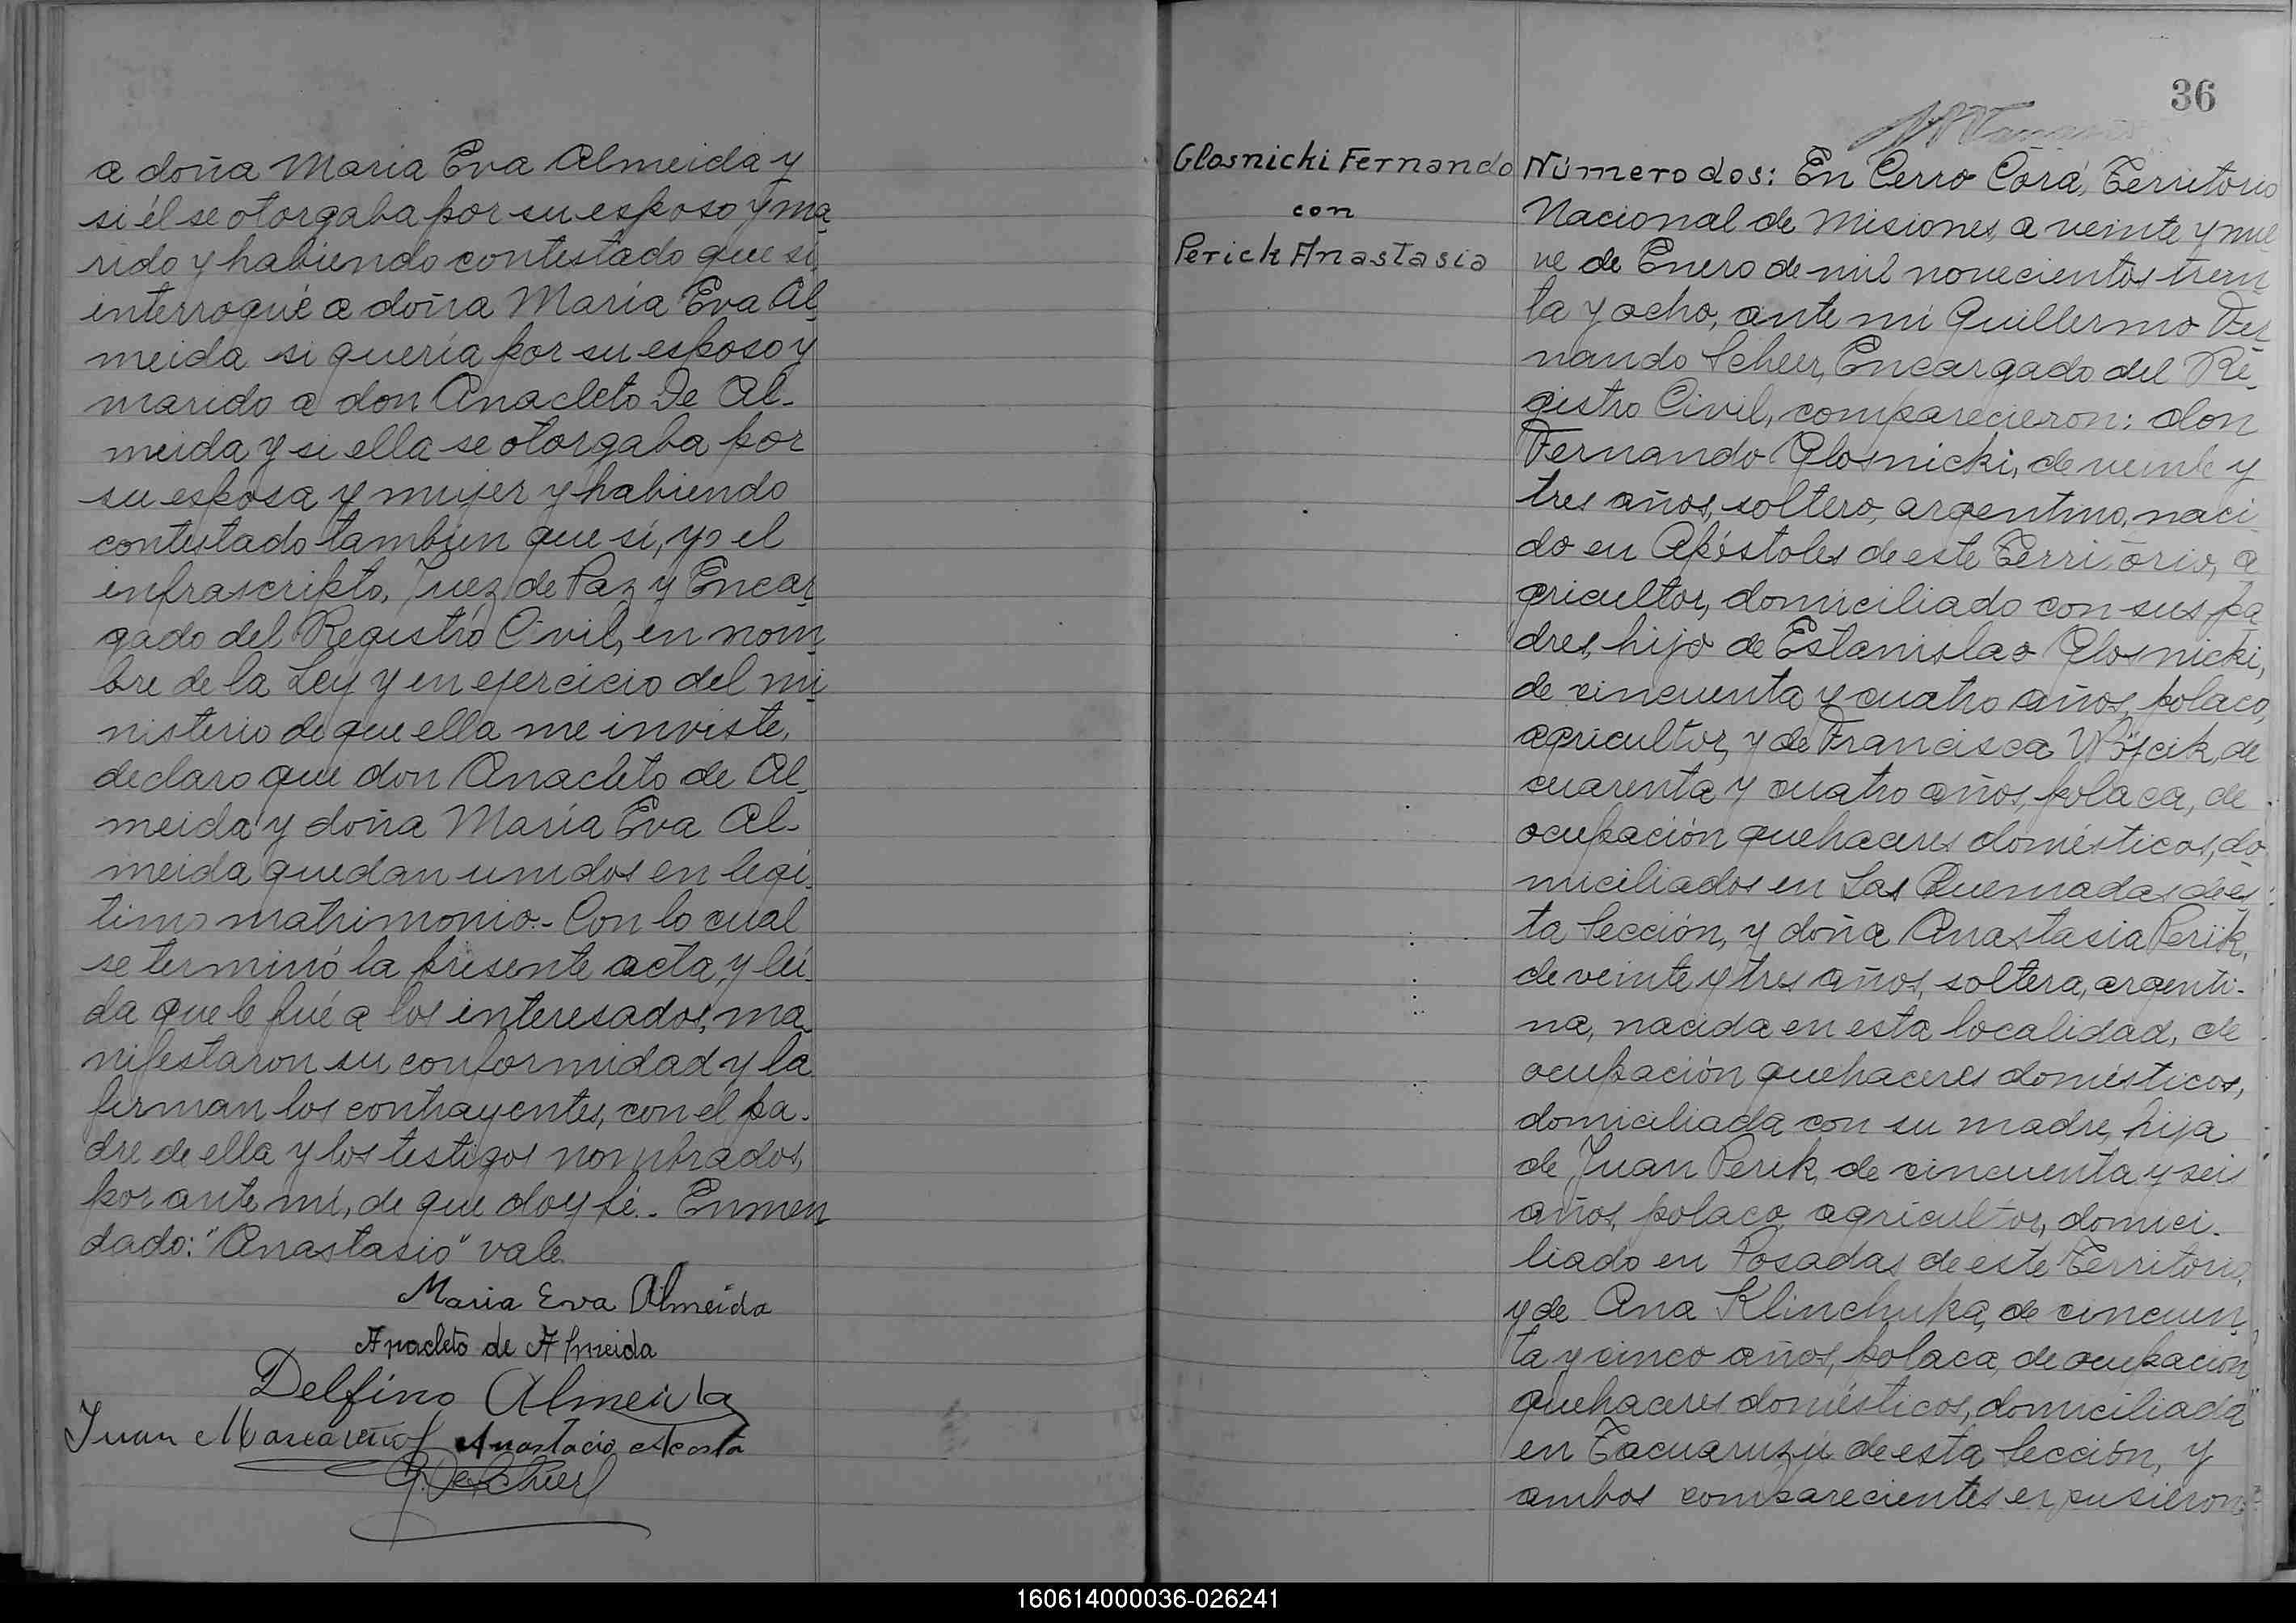 a doña Maria Eva Almeida y
si él se otorgaba por su esposo y ma
rido y habiendo contestado que si,
interrogué a doña María Eva Al
meida si quería por su esposo y
marido a don Anacleto De Al-
meida y si ella se otorgaba por
su esposa y mujer y habiendo
contestado tambien que sí, yo el
infrascripto, Juez de Paz y Encar
gado del Registro Civil, en nom
bre de la Ley y en ejercicio del mi
nisterio de que ella me inviste,
declaro que don Anacleto de Al
meida y doña María Eva Al-
meida quedan unidos en legi
timo matrimonio.- Con lo cual
se terminó la presente acta, y leí
da que le fué a los interesados, ma
nifestaron su conformidad y la
firman los contrayentes, con el pa-
dre de ella y los testigos nombrados,
por ante mí, de que doy fé.- Enmen
dado: "Anastasio" vale.
Maria Eva Almeida
Anacleto de Almeida
Delfino Almeida
Juan Anastacio Acosta
36
Glosnicki Fernando
con
Perick Anastasia
Número dos: En Cerro Corá, Territorio
Nacional de Misiones, a veinte y nue
ve de Enero de mil novecientos trein
ta y ocho, ante mi Guillermo Fer
nando Scheer, Encargado del Re
gistro Civil, comparecieron: don
Fernando Glosnicki, de veinte y
tres años, soltero, argentino, naci
do en Apóstoles de este Territorio, a
gricultor, domiciliado con sus pa
dres, hijo de Estanislao Glosnicki,
de cincuenta y cuatro años, polaco,
agricultor, y de Francisca Wójcik, de
cuarenta y cuatro años, polaca, de
ocupación quehaceres domésticos, do
miciliados en Las Quemadas de es
ta Sección, y doña Anastasia Perik,
de veinte y tres años, soltera, argenti-
na, nacida en esta localidad, de
ocupación quehaceres domésticos,
domiciliada con su madre, hija
de Juan Perik, de cincuenta y seis
años, polaco, agricultor, domici-
liado en Posadas de este Territorio,
y de Ana Klinchuka, de cincuen
ta y cinco años, polaca, de ocupación
quehaceres domésticos, domiciliada
en Tacuaruzú de esta Sección, y
ambos comparecientes expusieron:
160614000036-026241